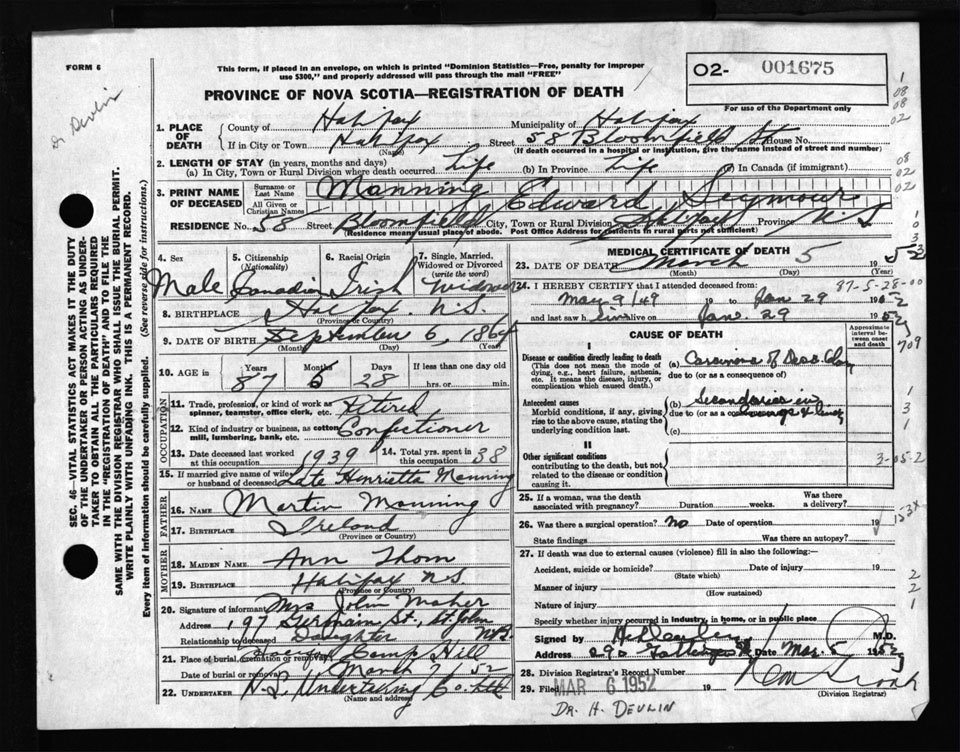 FORM 6
Dr Devlin
This form, if placed in an envelope, on which is printed "Dominion Statistics—Free, penalty for improper
use $300," and properly addressed will pass through the mail "FREE"
PROVINCE OF NOVA SCOTIA—REGISTRATION OF DEATH
02- 001675
For use of the Department only
SEC. 46 - VITAL STATISTICS ACT MAKES IT THE DUTY
OF THE UNDERTAKER OR PERSON ACTING AS UNDER-
TAKER TO OBTAIN ALL THE PARTICULARS REQUIRED
IN THE "REGISTRATION OF DEATH" AND TO FILE THE
SAME WITH THE DIVISION REGISTRAR WHO SHALL ISSUE THE BURIAL PERMIT.
WRITE PLAINLY WITH UNFADING INK. THIS IS A PERMANENT RECORD.
Every item of information should be carefully supplied. (See reverse side for instructions.)
1. PLACE OF DEATH
County of Halifax Municipality of Halifax
If in City or Town Halifax Street 58 Bloomfield St House No.
(Name) (If death occurred in a hospital or institution, give the name instead of street and number)
2. LENGTH OF STAY (in years, months and days)
(a) In City, Town or Rural Division where death occurred Life (b) In Province Life (c) In Canada (if immigrant)
3. PRINT NAME OF DECEASED
Surname or Last Name Manning
All Given or Christian Names Edward Seymour
RESIDENCE No. 58 Street Bloomfield City, Town or Rural Division Halifax Province N.S
(Residence means usual place of abode. Post Office Address for residents in rural parts not sufficient)
4. Sex Male
5. Citizenship (Nationality) Canadian
6. Racial Origin Irish
7. Single, Married, Widowed or Divorced (write the word) Widower
8. BIRTHPLACE Halifax N.S.
(Province or Country)
9. DATE OF BIRTH September 6, 1864
(Month) (Day) (Year)
10. AGE in Years Months Days If less than one day old
87 6 28 hrs. or min.
OCCUPATION
11. Trade, profession, or kind of work as spinner, teamster, office clerk, etc. Retired
12. Kind of industry or business, as cotton mill, lumbering, bank, etc. Confectioner
13. Date deceased last worked at this occupation 1939 14. Total yrs. spent in this occupation 38
15. If married give name of wife or husband of deceased Late Henrietta Manning
FATHER
16. NAME Martin Manning
17. BIRTHPLACE Ireland
(Province or Country)
MOTHER
18. MAIDEN NAME Ann Thom
19. BIRTHPLACE Halifax N.S.
(Province or Country)
20. Signature of informant Mrs John Maher
Address 197 Germain St., St. John
Relationship to deceased Daughter N.B.
21. Place of burial, cremation or removal Camp Hill
Date of burial or removal March 7 52
22. UNDERTAKER N.S. Undertaking Co. Ltd
(Name and address)
MEDICAL CERTIFICATE OF DEATH
23. DATE OF DEATH March 5 1952
(Month) (Day) (Year)
24. I HEREBY CERTIFY that I attended deceased from: 87-5-28-00
May 9/49 19 to Jan 29 1952
and last saw h alive on Jan. 29 1952
CAUSE OF DEATH
Approximate interval between onset and death
I
Disease or condition directly leading to death
(This does not mean the mode of dying, e.g., heart failure, asthenia, etc. It means the disease, injury, or complication which caused death.)
(a) Carcinoma of Desc. Colon
due to (or as a consequence of)
Antecedent causes
Morbid conditions, if any, giving rise to the above cause, stating the underlying condition last.
(b) Secondaries in
due to (or as a consequence of)
(c)
II
Other significant conditions
contributing to the death, but not related to the disease or condition causing it.
3-05-2
25. If a woman, was the death associated with pregnancy? Duration weeks. Was there a delivery?
26. Was there a surgical operation? No Date of operation 19
153X
State findings Was there an autopsy?
27. If death was due to external causes (violence) fill in also the following:—
Accident, suicide or homicide? Date of injury 19
(State which)
Manner of injury
(How sustained)
Nature of injury
Specify whether injury occurred in industry, in home, or in public place
Signed by M.D.
Address 290 Date Mar. 5 1952
28. Division Registrar's Record Number
29. Filed MAR 6 1952 19
(Division Registrar)
DR. H. DEVLIN